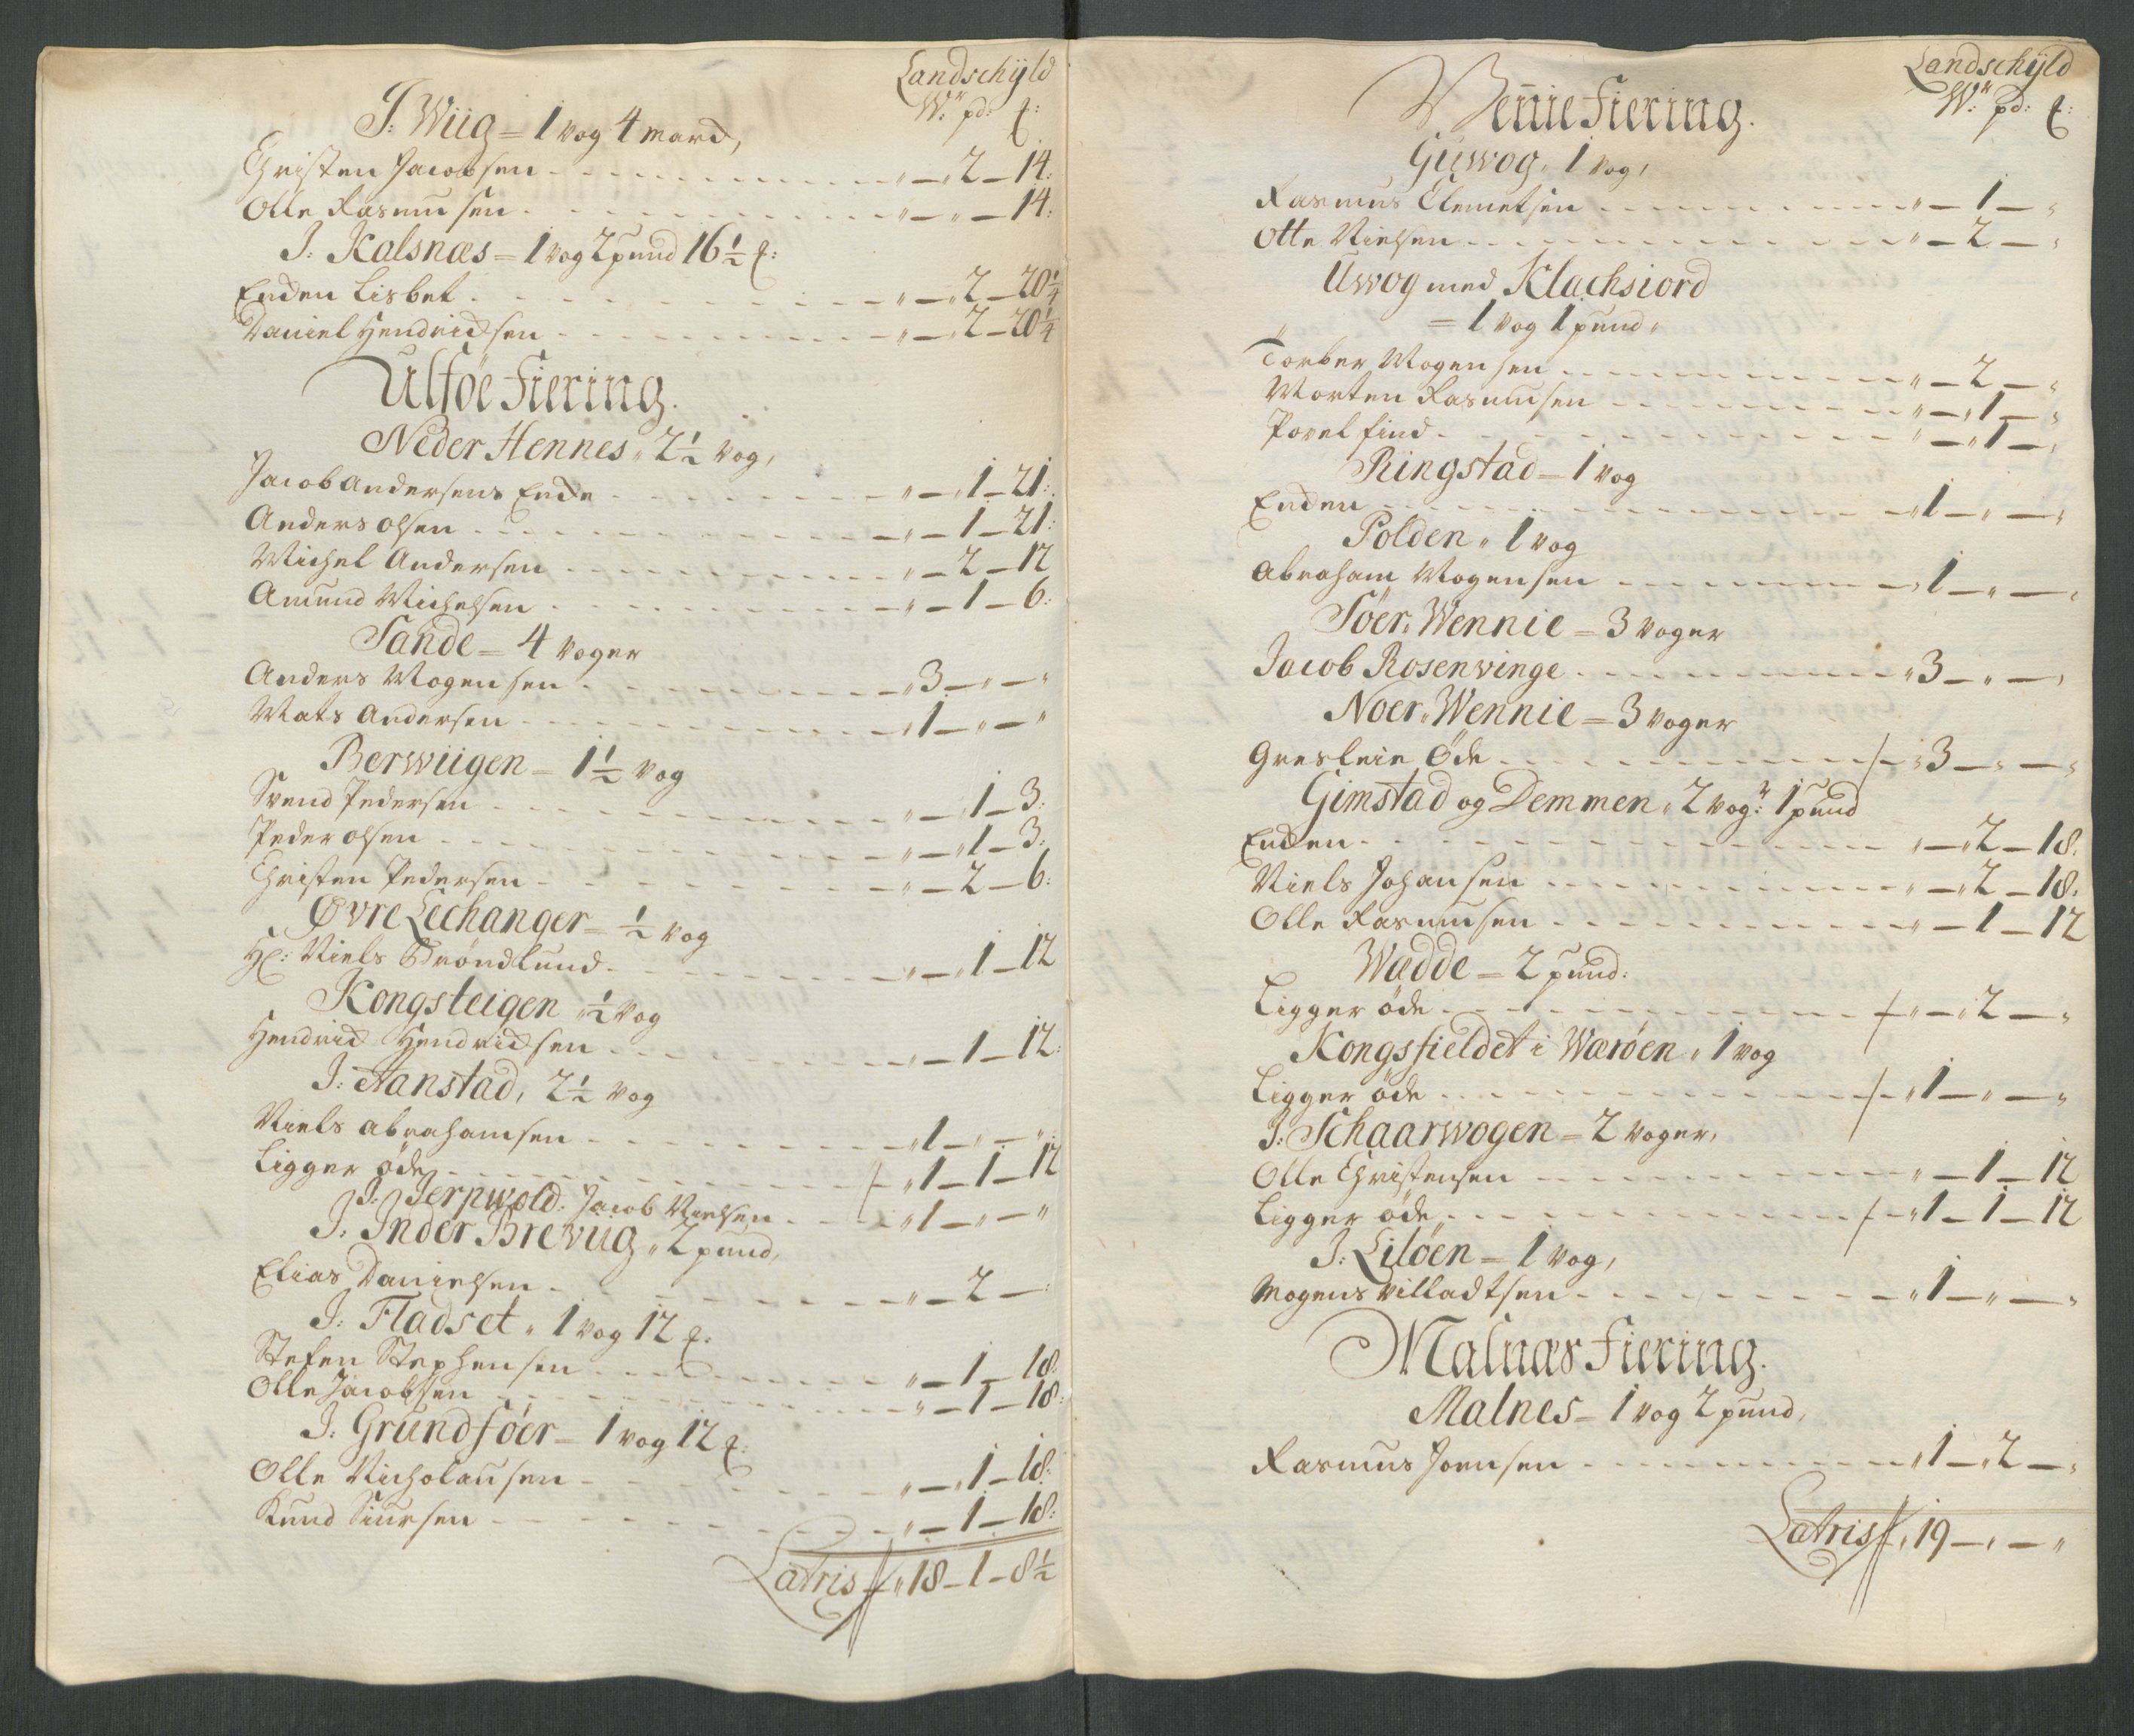 Landschÿld
W:r pd: ₤:
J: Wiig = 1 vog 4 march,
Christen Jacobsen - - - „ — 2 — 14:
Olle Rasmusen - - - „ — „ — 14:
J: Kalsnæs = 1 vog 2 pund 16½ ₤:
Enchen Lisbet - - - „ — 2 — 20¼
Daniel Hendrichsen - - - „ — 2 — 20¼
Ulföe Fiering.
Neder Hennes „ 2½ vog,
Jacob Andersens Enche - - - „ — 1 — 21:
Anders Olsen - - - „ — 1 — 21:
Michel Andersen - - - „ — 2 — 12
Amund Michelsen - - - „ — 1 — 6:
Sande = 4 voger
Anders Mogensen - - - „ 3 — „ — „
Mats Andersen - - - „ 1 — „ — „
Berwiigen = 1½ vog
Svend Pedersen - - - „ — 1 — 3:
Peder Olsen - - - „ — 1 — 3:
Christen Pedersen - - - „ — 2 — 6:
Øvre Lechanger = ½ vog
Hr: Niels Trøndlund - - - „ — 1 — 12
Kongsteigen „ ½ vog
Hendrich Hendrichsen - - - „ — 1 — 12:
J: Aanstad, 2½ vog
Niels Abrahamsen - - - „ 1 — „ — „
Ligger øde - - - „ 1 — 1 — 12
J: Jerpwold: Jacob Nielsen - - - „ 1 — „ — „
J: Inder Brevüg „ 2 pund,
Elias Danielsen - - - „ — 2 — :
J: Fladset „ 1 vog 12 ₤:
Stefen Stephensen - - - „ — 1 — 18
Olle Jacobsen - - - „ — 1 — 18:
J: Grundföer = 1 vog 12 ₤:
Olle Nicholausen - - - „ — 1 — 18:
Knud Siursen - - - „ — 1 — 18:
Latris „ 18 — 1 — 8½
Landschÿld
W:r pd: ₤:
Wennie Fiering.
Guwog, 1 vog,
Rasmus Clemetsen - - - „ — 1 — „
Otte Nielsen - - - „ — 2 — „
Uwog med Klachsiord
= 1 vog 1 pund „
Torber Mogensen - - - „ — 2 — „
Morten Rasmusen - - - „ — 1 — „
Povel find - - - „ — 1 — „
Ringstad = 1 vog
Enchen - - - „ 1 — „ — „
Polden „ 1 vog
Abraham Mogensen - - - „ 1 — „ — „
Söer Wennie = 3 voger
Jacob Rosenvinge - - - „ 3 — „ — „
Noer Wennie = 3 voger
Gresleie Øde - - - „ 3 — „ — „
Gimstad og Demmen „ 2 vog:r 1 pund
Enchen - - - „ — 2 — 18:
Niels Johansen - - - „ — 2 — 18:
Olle Rasmusen - - - „ — 1 — 12
Wædde = 2 pund:
Ligger øde - - - „ — 2 — „
Kongsfieldet i Wærøen „ 1 vog
Ligger øde - - - „ 1 — „ — „
J: Schaarwogen = 2 voger,
Olle Christensen - - - „ — 1 — 12
Ligger øde - - - „ 1 — 1 — 12
J: Liløen = 1 vog,
Mogens Villadtsen - - - „ 1 — „ — „
Malnæs Fiering.
Malnes = 1 vog 2 pund,
Rasmus Joensen - - - „ 1 — 2 — „
Latris „ 19 — „ — „